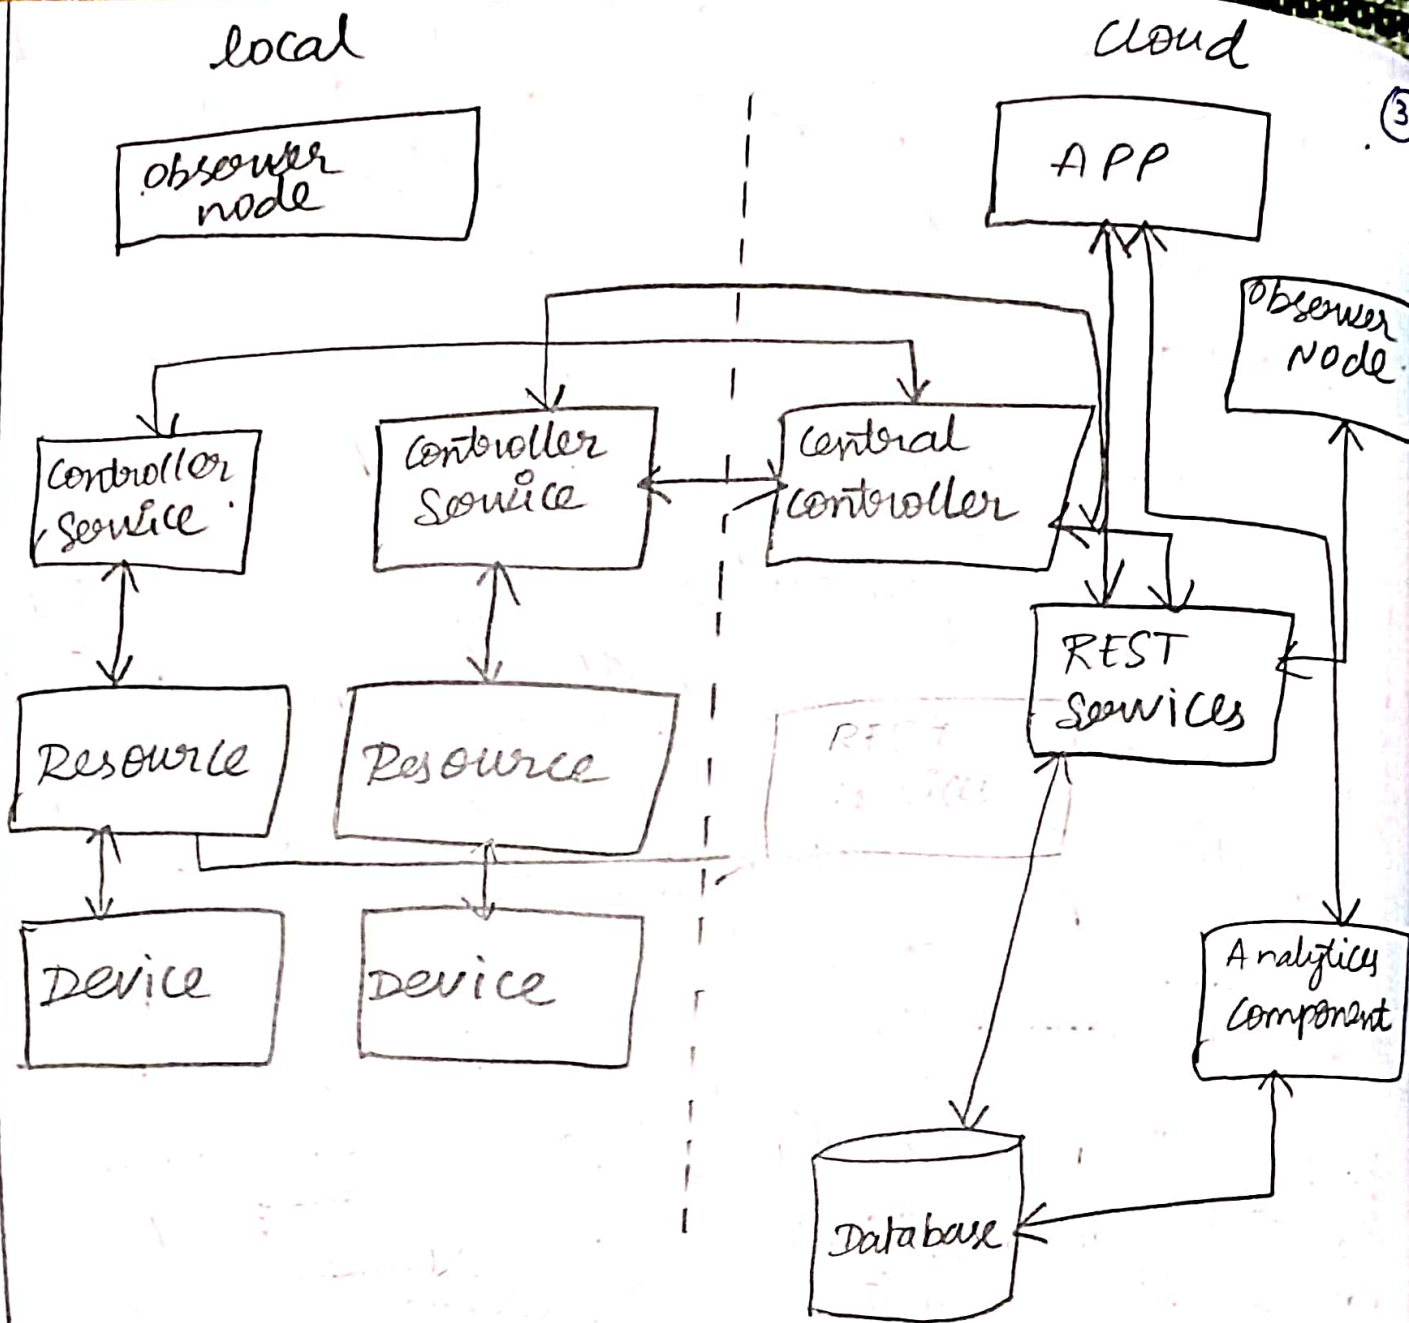 local
cloud
3
APP
observer
node
Observer
Node
Controller
Service
Controller
Service
Central
Controller
REST
Services
Resource
Resource
Device
Device
Analytics
Component
Database